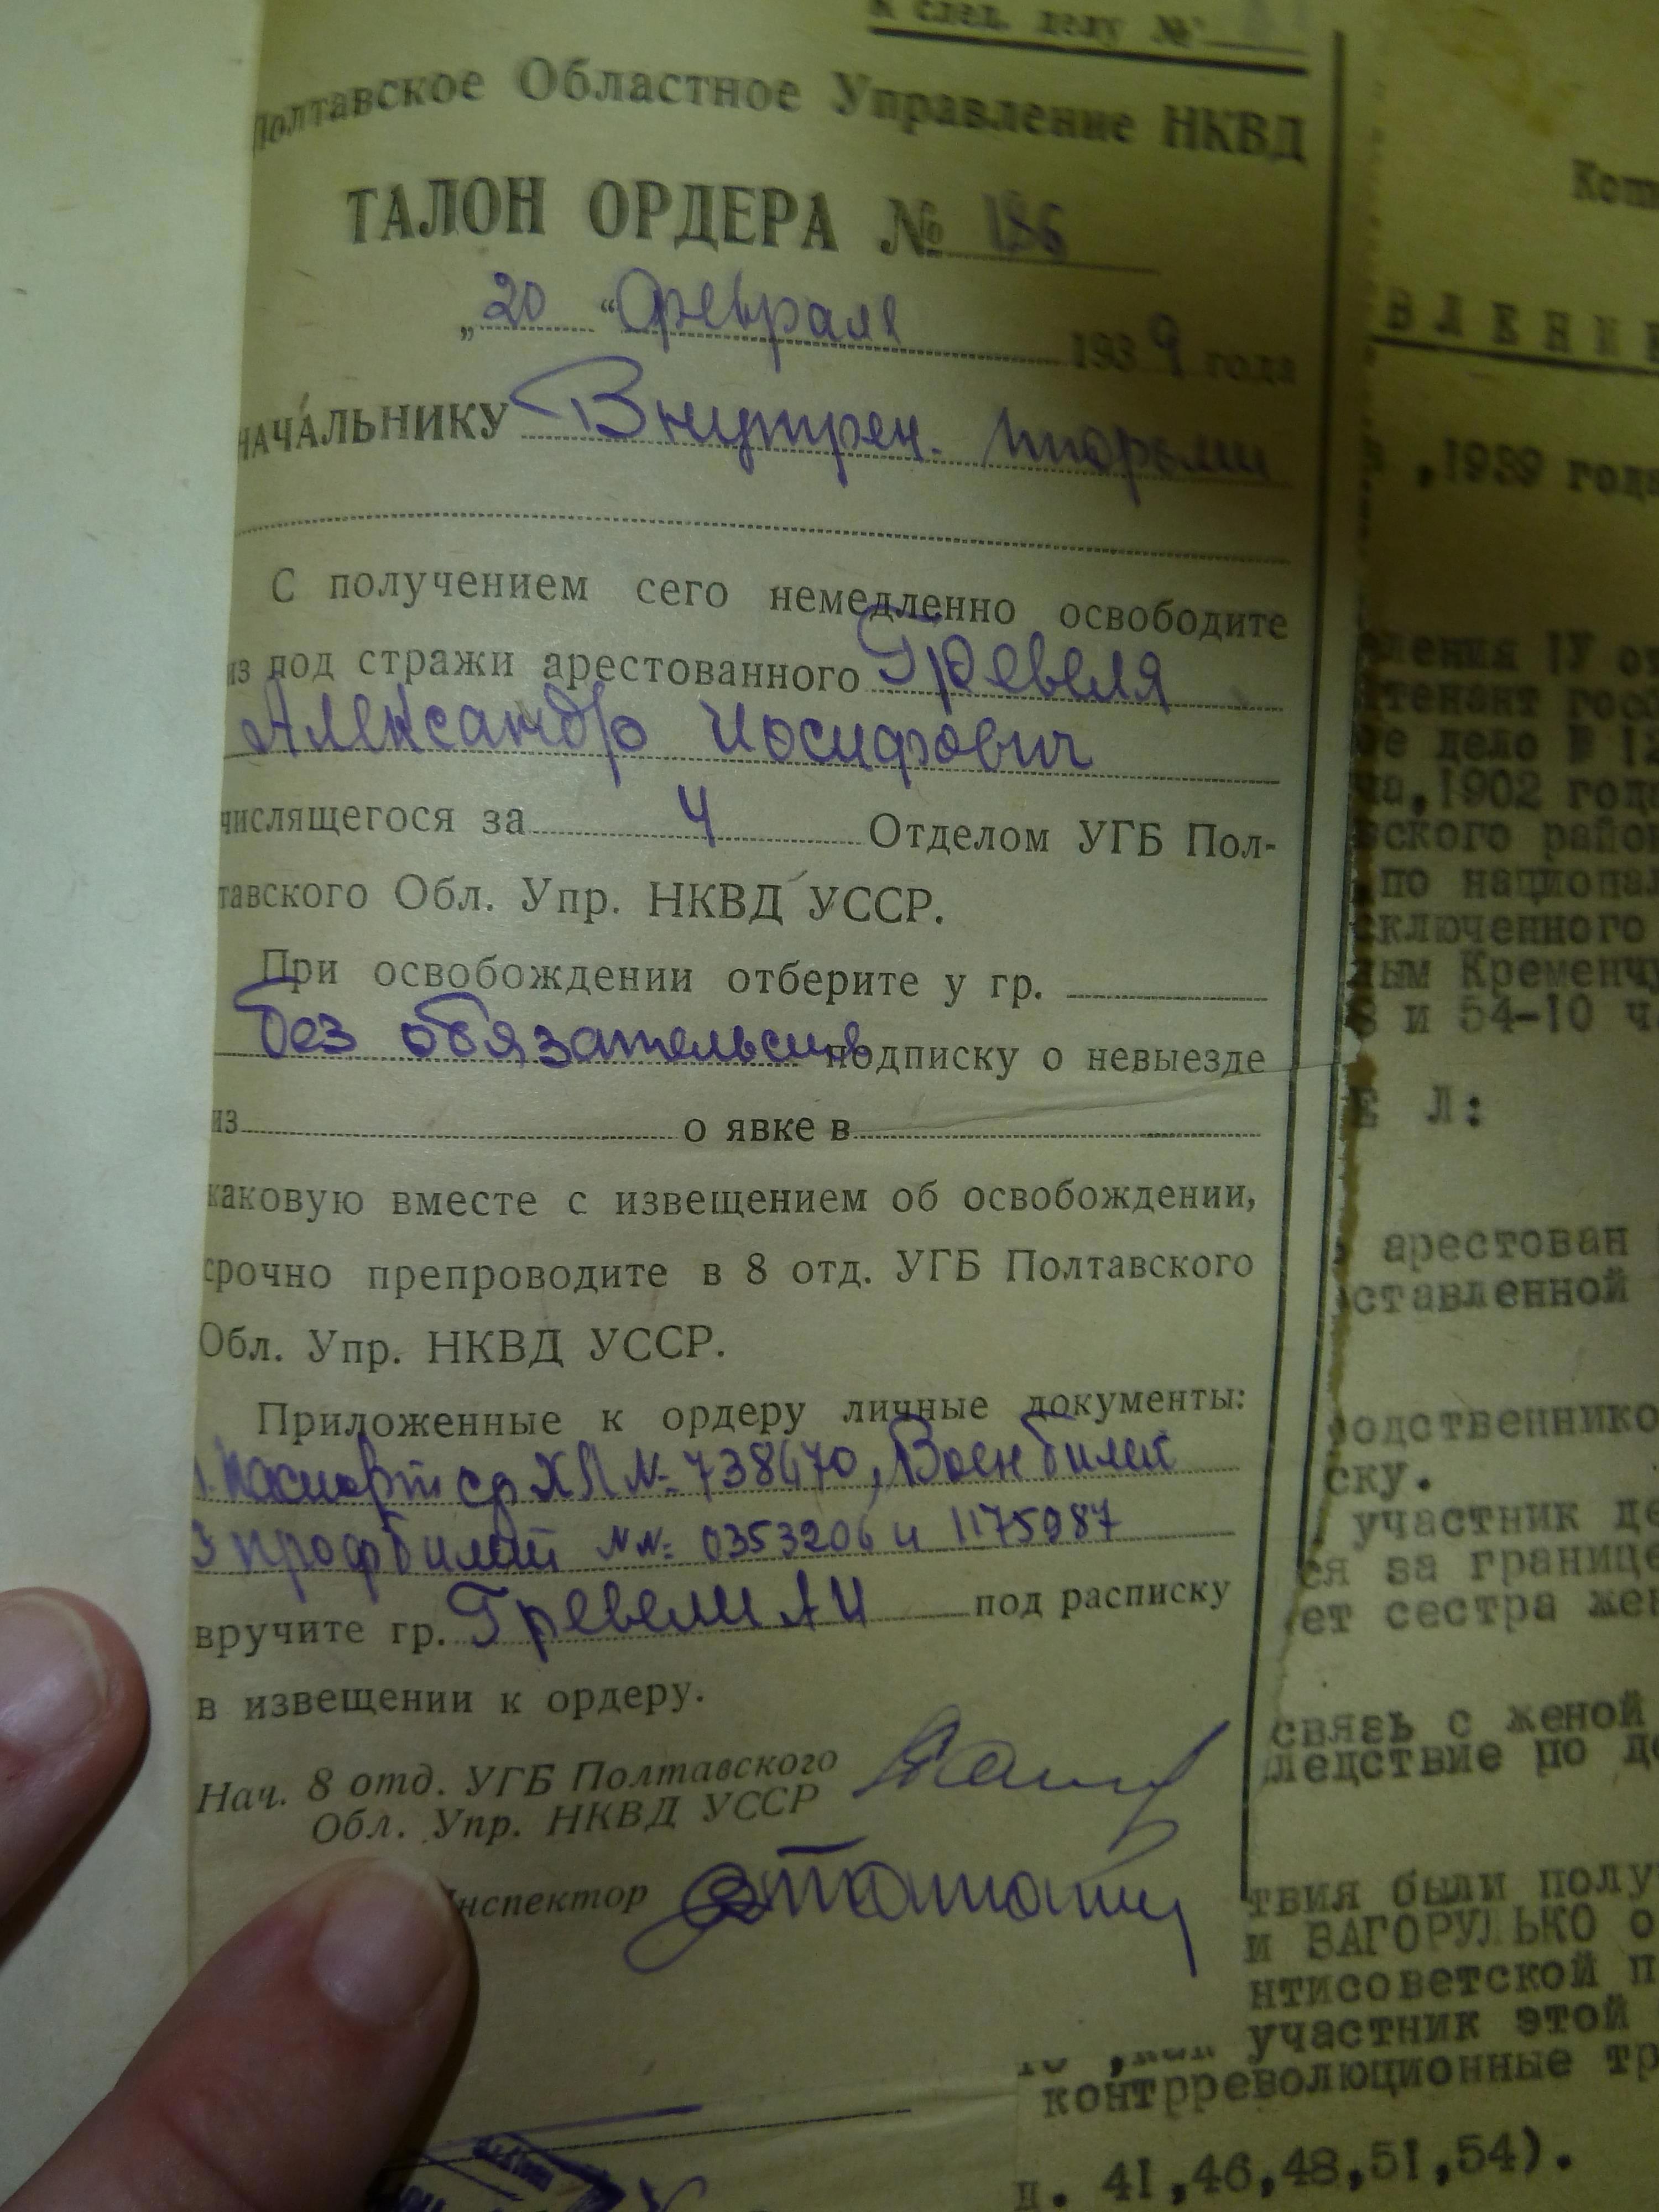 К след. делу №
Полтавское Областное Управление НКВД
ТАЛОН ОРДЕРА № 186
„20“ Февраля 1939 года
НАЧАЛЬНИКУ Внутрен. тюрьми
С получением сего немедленно освободите
из под стражи арестованного Гревеля
Александр Иосифович
числящегося за 4 Отделом УГБ Пол-
тавского Обл. Упр. НКВД УССР.
При освобождении отберите у гр.
без обязательств подписку о невыезде
из о явке в
каковую вместе с извещением об освобождении,
срочно препроводите в 8 отд. УГБ Полтавского
Обл. Упр. НКВД УССР.
Приложенные к ордеру личные документы:
1. Паспорт ср ХЛ № 738470, Военбилет
3 профбилет №№: 0353206 и 1175987
вручите гр. Гревели А И под расписку
в извещении к ордеру.
Нач. 8 отд. УГБ Полтавского
Обл. Упр. НКВД УССР
Инспектор
ВЛЕНИ
,1939 года
ления IУ от
тенант гос
ое дело № 12
ча,1902 год
вского район
,по национал
сключенного
ным Кременчу
8 и 54-10 ч
Е Л:
арестован
ставленной
одственнико
ску.
участник де
ся за границе
ет сестра жен
связь с женой
ледствие по д
твия были полу
и ЗАГОРУЛЬКО о
нтисоветской п
участник этой
контрреволюционные тр
д. 41,46,48,51,54).